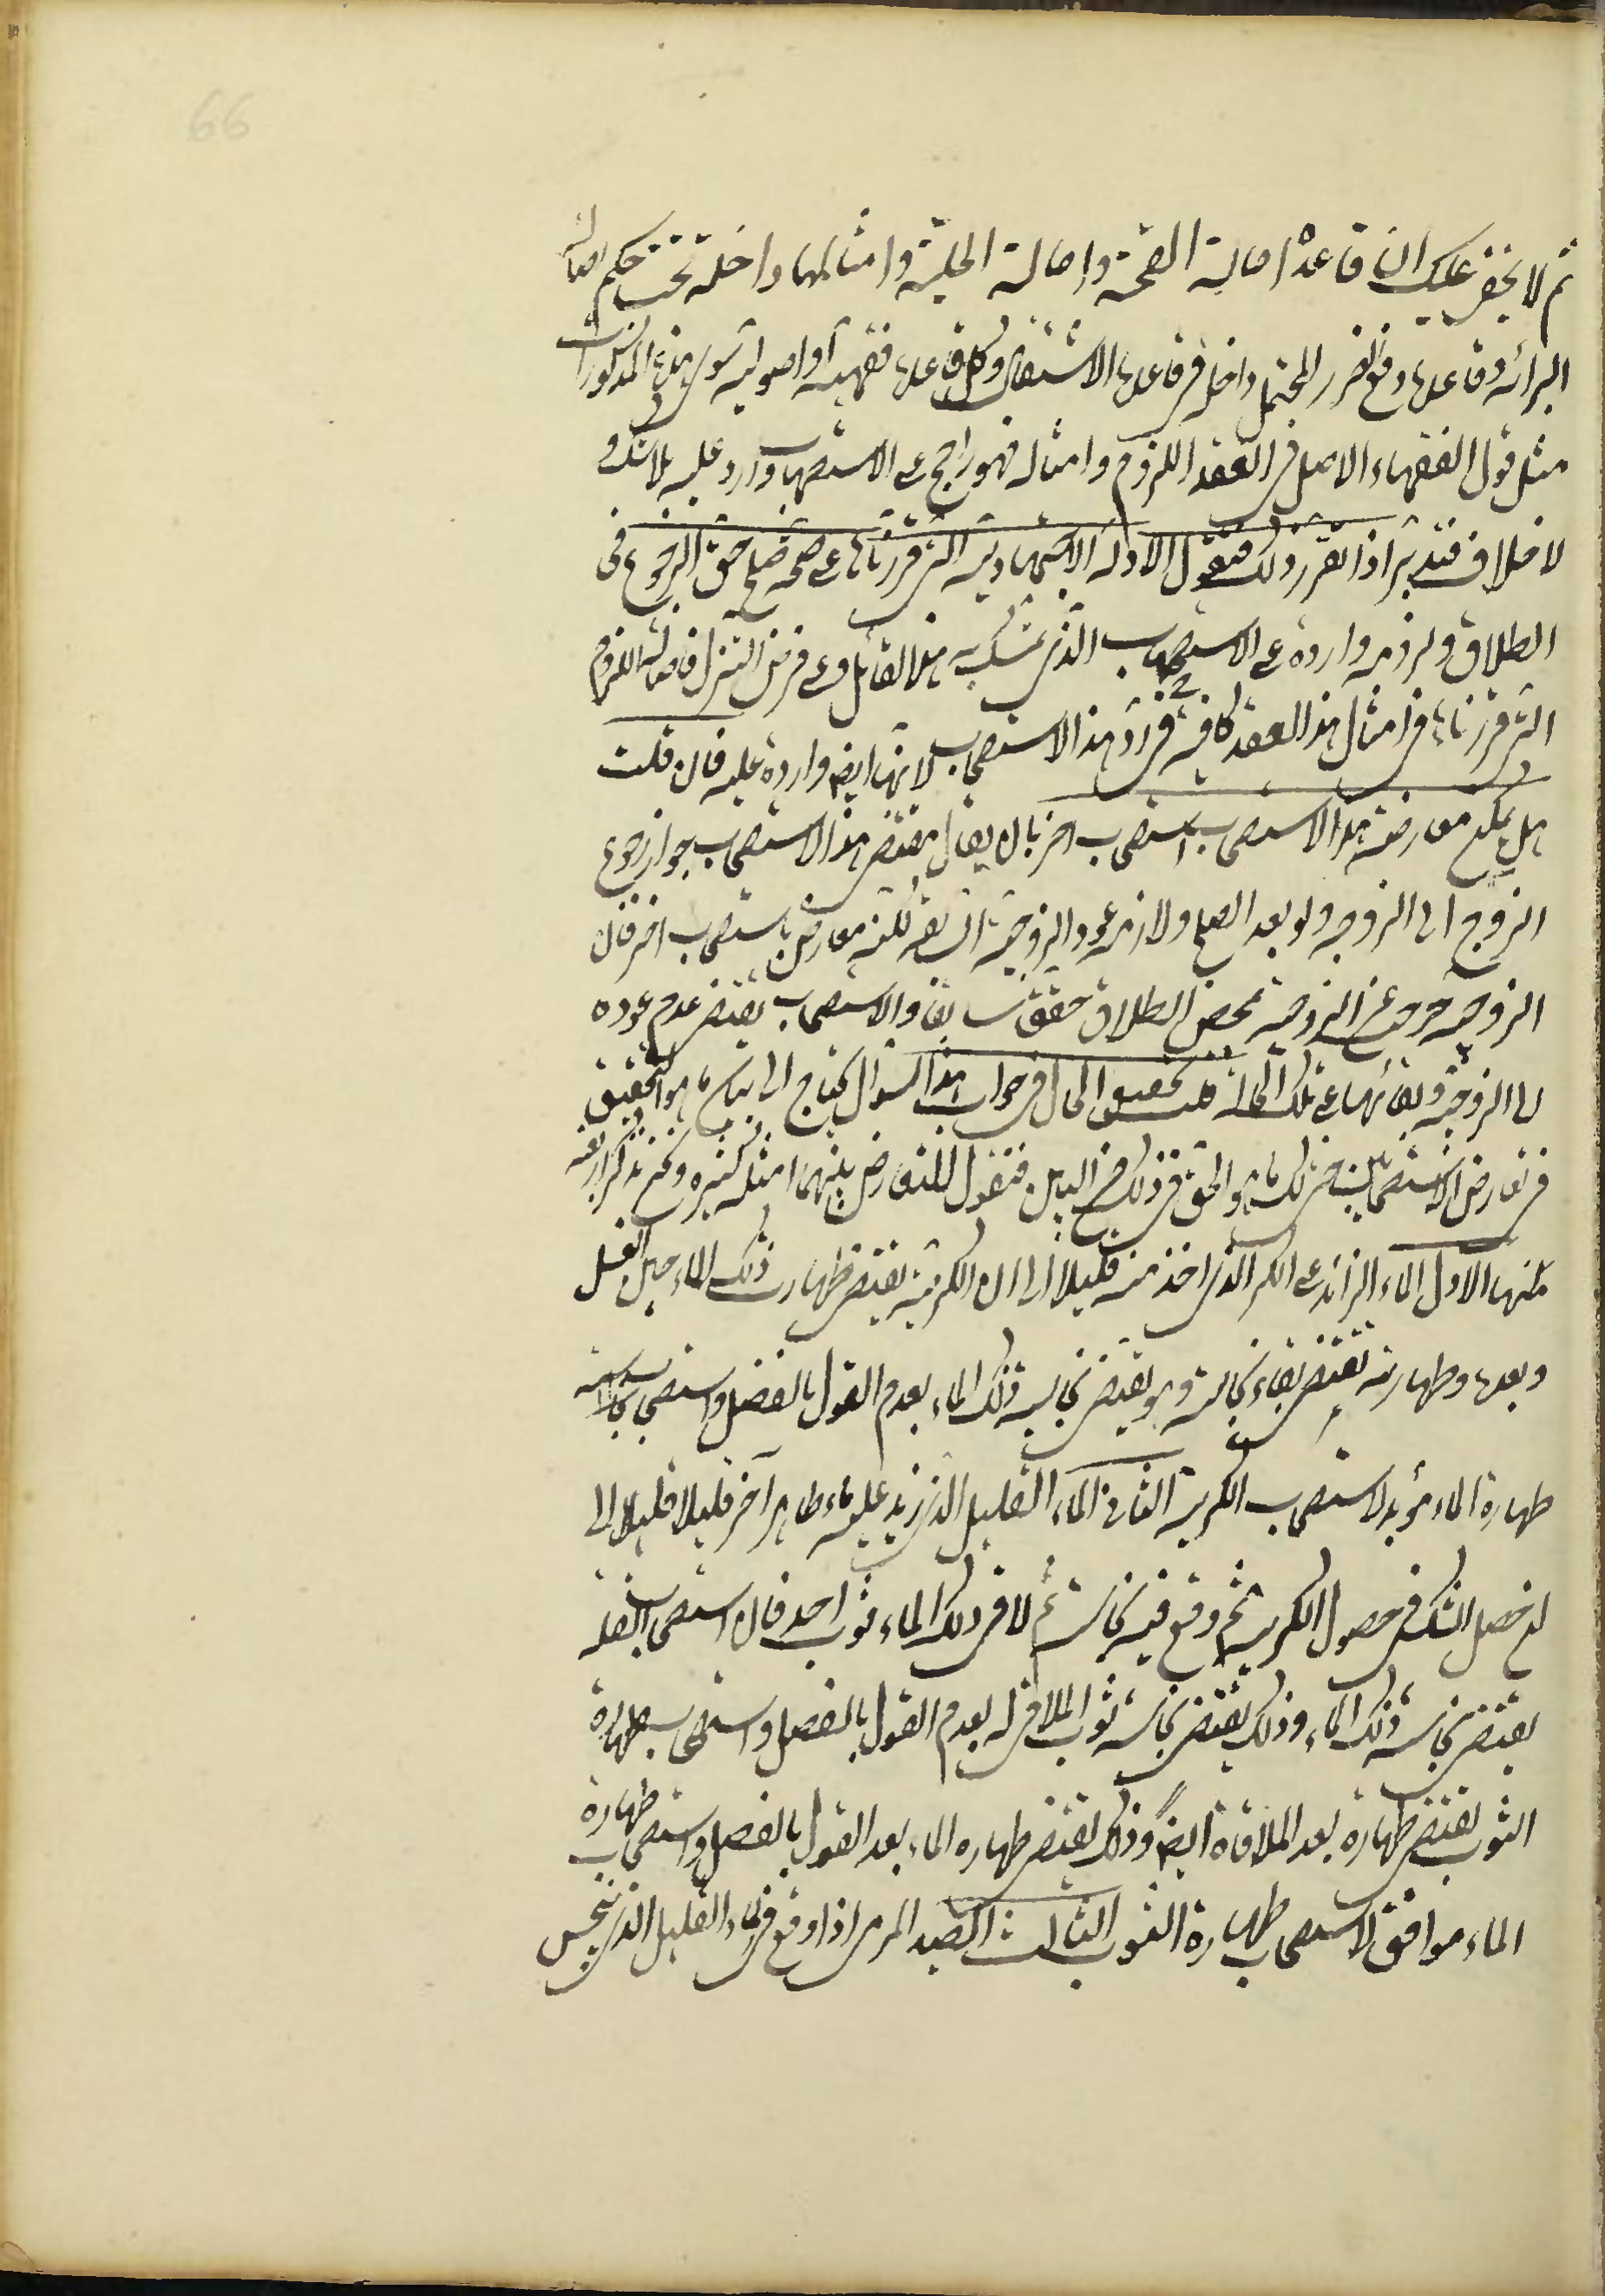 66
ثم لا يخفى عليك ان قاعدة اصالة الصحة واصالة الحلية وامثالهما داخلة تحت حكم اصالة
البرائة وقاعدة دفع الضرر المحتمل داخل في قاعدة الاشتغال وكل قاعدة فقهية او اصولية سوى هذه المذكورات
مثل قول الفقهاء الاصل في العقد اللزوم وامثاله فهو راجع الى الاستصحاب وارد عليه بلا شك و
لا خلاف فتدبر اذا تقرر ذلك فنقول الادلة الاجتهادية التي قررناها على صحة صلح حق الرجوع في
الطلاق ولزومه واردة على الاستصحاب الذي تمسك به هذا القائل وعلى فرض التنزل فاصالة اللزوم
التي قررناها في امثال هذا العقد كافية في رد هذا الاستصحاب لانها ايضا واردة عليه فان قلت
هل يمكن معارضة هذا الاستصحاب باستصحاب اخر بان يقال مقتضى هذا الاستصحاب جواز رجوع
الزوج الى الزوجة ولو بعد الصلح ولازمه عود الزوجية السابقة لكنه معارض باستصحاب اخر فان
الزوجة خرجت عن الزوجية بمحض الطلاق حقق سابقا والاستصحاب يقتضى عدم عوده
الى الزوجية وبقائها على تلك الحالة قلت تحقيق الحال في جواب هذا السؤال يحتاج الى بيان ما هو التحقيق
في تعارض الاستصحابين حتى لك ما هو الحق في ذلك في البين فنقول للتعارض بينهما امثلة كثيرة ونحن نذكر اربعة
منها الاول الماء الزائد على الكر الذي اخذ منه قليلا الى ان الكرية يقتضى طهارت ذلك الماء حين الغسل
وبعده وطهارته تقتضى بقاء نجاسة وهو يقتضى نجاسة ذلك الماء بعدم القول بالفصل واستصحاب نجاسته
طهارة الماء مؤيد لاستصحاب الكرية الثانى الماء القليل الذي زيد عليه ماء طاهر آخر قليلا قليلا الى
ان حصل الشك فى حصول الكرية ثم وقع فيه نجاسة ثم لاقى ذلك الماء ثوب احد فان استصحاب القلة
يقتضى نجاسة ذلك الماء وذلك يقتضى نجاسة ثوب الملاقى له بعدم القول بالفصل واستصحاب طهارة
الثوب يقتضى طهارة بعد الملاقاة ايضا وذلك يقتضى طهارة الماء بعد القول بالفصل واستصحاب طهارة
الماء موافق لاستصحاب طهارة الثوب الثالث الصيد المرمى اذا وقع في الماء القليل الذي ينجس